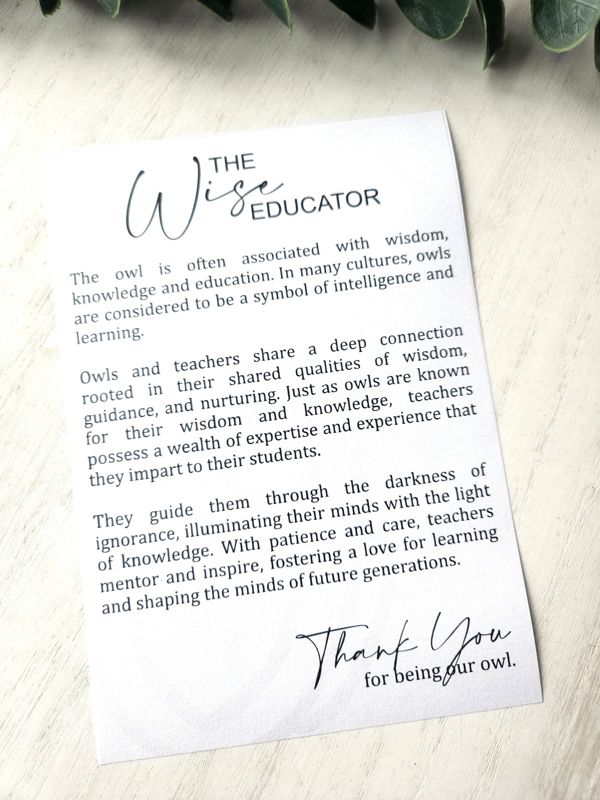 THE
Wise
EDUCATOR
The owl is often associated with wisdom,
knowledge and education. In many cultures, owls
are considered to be a symbol of intelligence and
learning.
Owls and teachers share a deep connection
rooted in their shared qualities of wisdom,
guidance, and nurturing. Just as owls are known
for their wisdom and knowledge, teachers
possess a wealth of expertise and experience that
they impart to their students.
They guide them through the darkness of
ignorance, illuminating their minds with the light
of knowledge. With patience and care, teachers
mentor and inspire, fostering a love for learning
and shaping the minds of future generations.
Thank You
for being our owl.